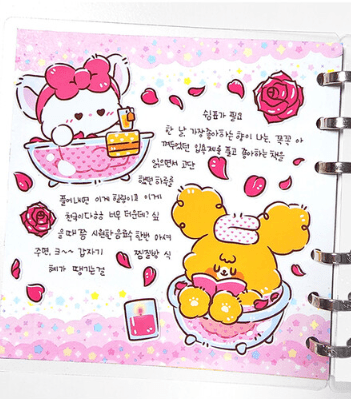 쉼표가 필요
한 날, 가장 좋아하는 향이 나는, 꼭꼭 아
껴두었던 입욕제를 풀고 좋아하는 책을
읽으면서 고단
했던 하루를
풀어내면 이게 힐링이고 이게
천국이다아아 너무 더운데? 싶
을 때쯤 시원한 음료수 한번 마셔
주면, 크~~ 갑자기 찜질방 식
혜가 땡기는걸